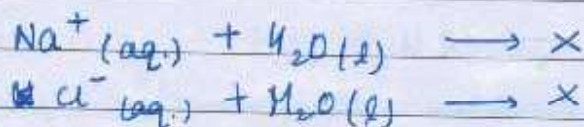 Na⁺ (aq.) + H₂O(l) ⟶ ×
Cl⁻ (aq.) + H₂O(l) ⟶ ×